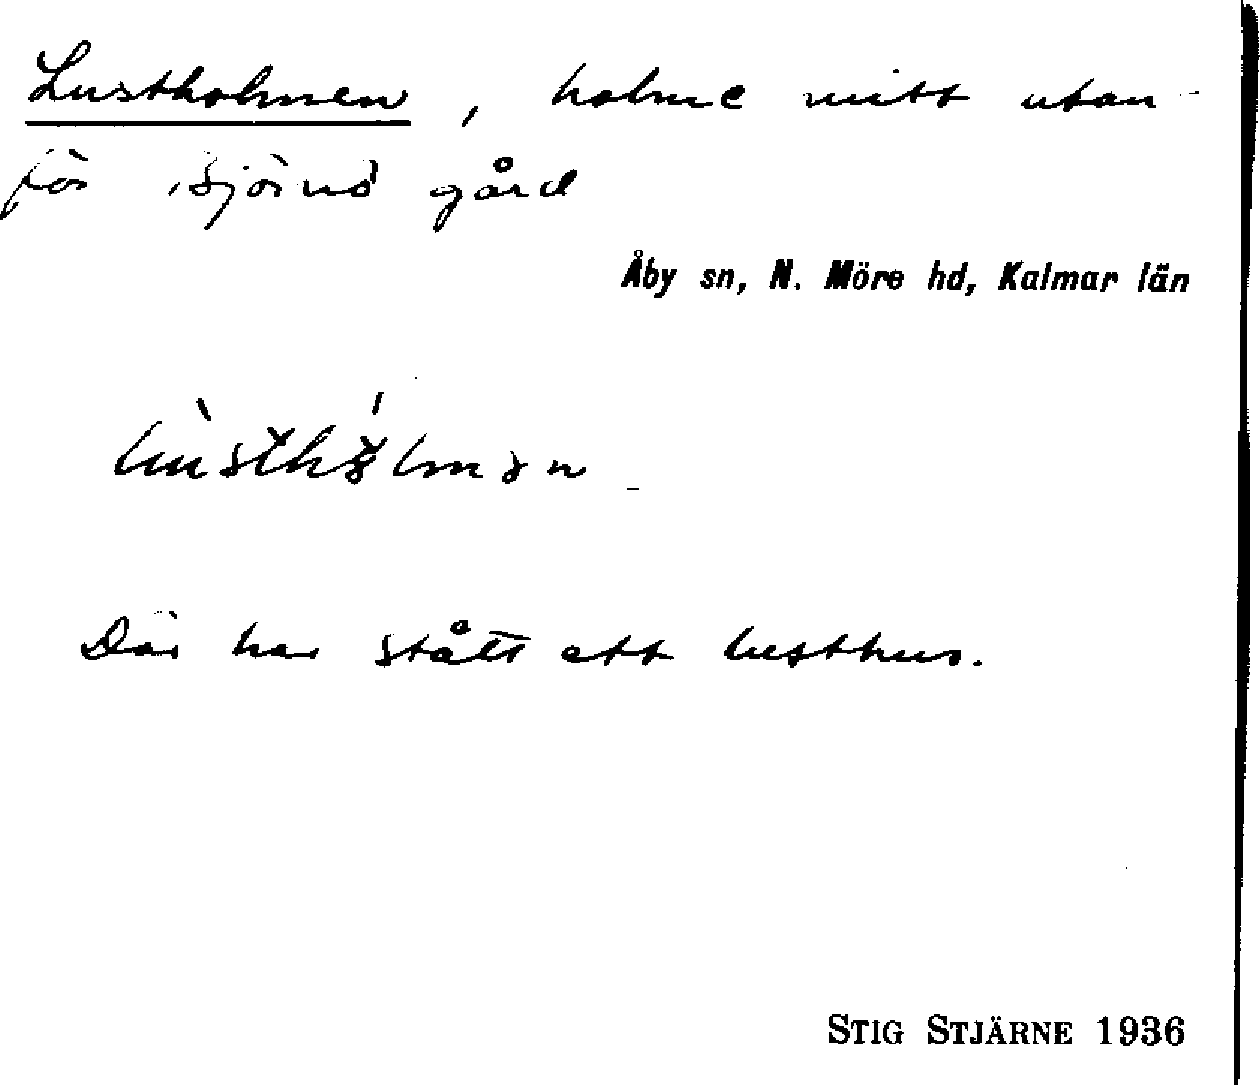 Lustholmen, holme mitt utan-
för Björnö gård
Åby sn, N. Möre hd, Kalmar län
Där har stått ett lusthus.
STIG STJÄRNE 1936